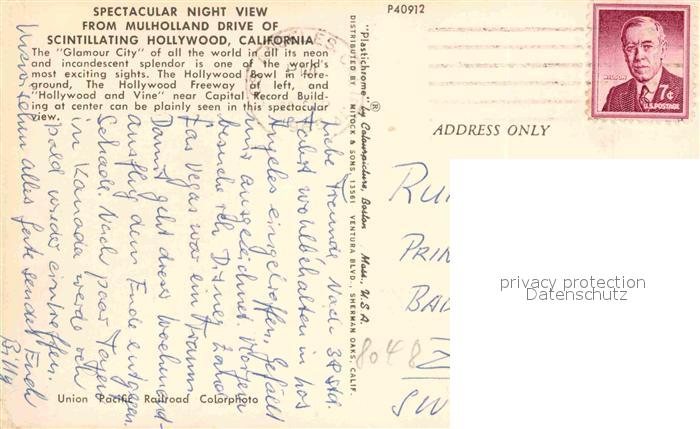 SPECTACULAR NIGHT VIEW
FROM MULHOLLAND DRIVE OF
SCINTILLATING HOLLYWOOD, CALIFORNIA
The "Glamour City" of all the world in all its neon
and incandescent splendor is one of the world's
most exciting sights. The Hollywood Bowl in fore-
ground, The Hollywood Freeway at left, and
"Hollywood and Vine" near Capital Record Build-
ing at center can be plainly seen in this spectacular
view.
Liebe Freunde Nach 3 Std.
Fahrt wohlbehalten in Los
Angeles eingetroffen. Gefällt
mir ausgezeichnet. Morgen
besuche ich Disney Land
Las Vegas war ein Traum.
Damit geht dieser
ausflug dem Ende entgegen.
Schade. Nach paar Tagen
in Kanada werde ich
bald wieder eintreffen.
alles Gute sendet Euch
Billy
Union Pacific Railroad Colorphoto
"Plastichrome" ® by Colourpicture, Boston Mass., U.S.A.
DISTRIBUTED BY MITOCK & SONS, 13561 VENTURA BLVD., SHERMAN OAKS, CALIF.
P40912
WILSON
7¢
U.S. POSTAGE
ADDRESS ONLY
RU
PRIN
BAD
8048 Z
SW
privacy protection
Datenschutz